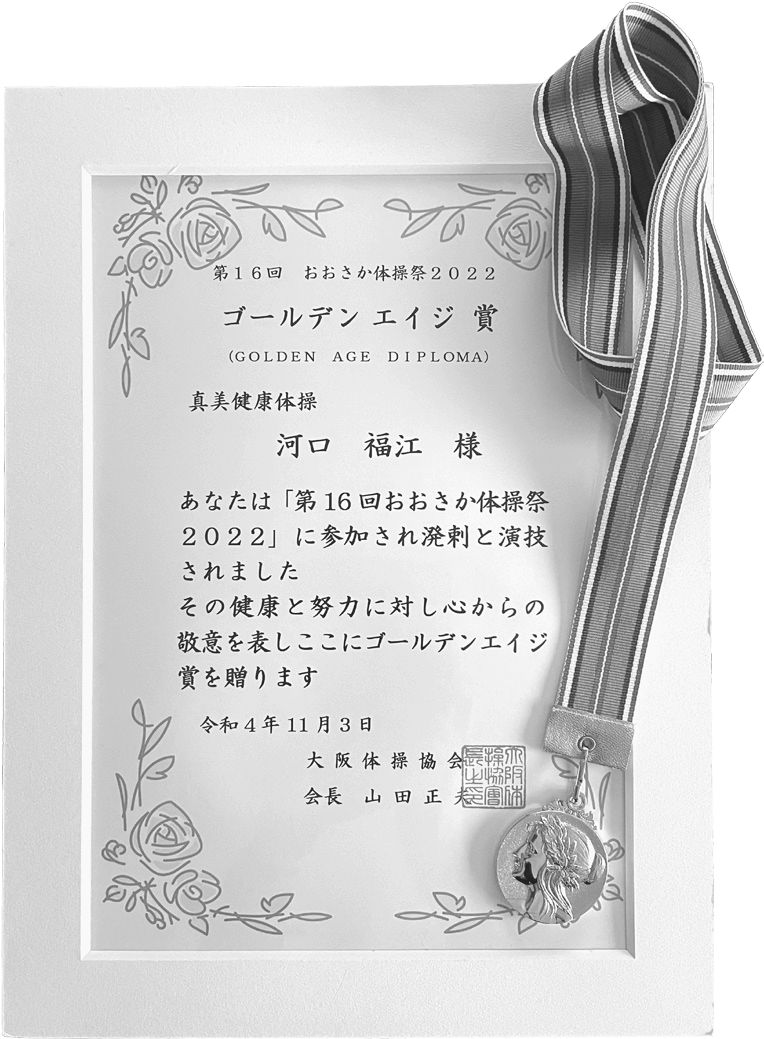 第１６回　おおさか体操祭２０２２
ゴールデン エイジ 賞
(GOLDEN AGE DIPLOMA)
真美健康体操
河口　福江　様
あなたは「第16回おおさか体操祭
２０２２」に参加され溌剌と演技
されました
その健康と努力に対し心からの
敬意を表しここにゴールデンエイジ
賞を贈ります
令和４年11月３日
大阪体操協会
会長　山田正夫
大阪体
操協會
長之印